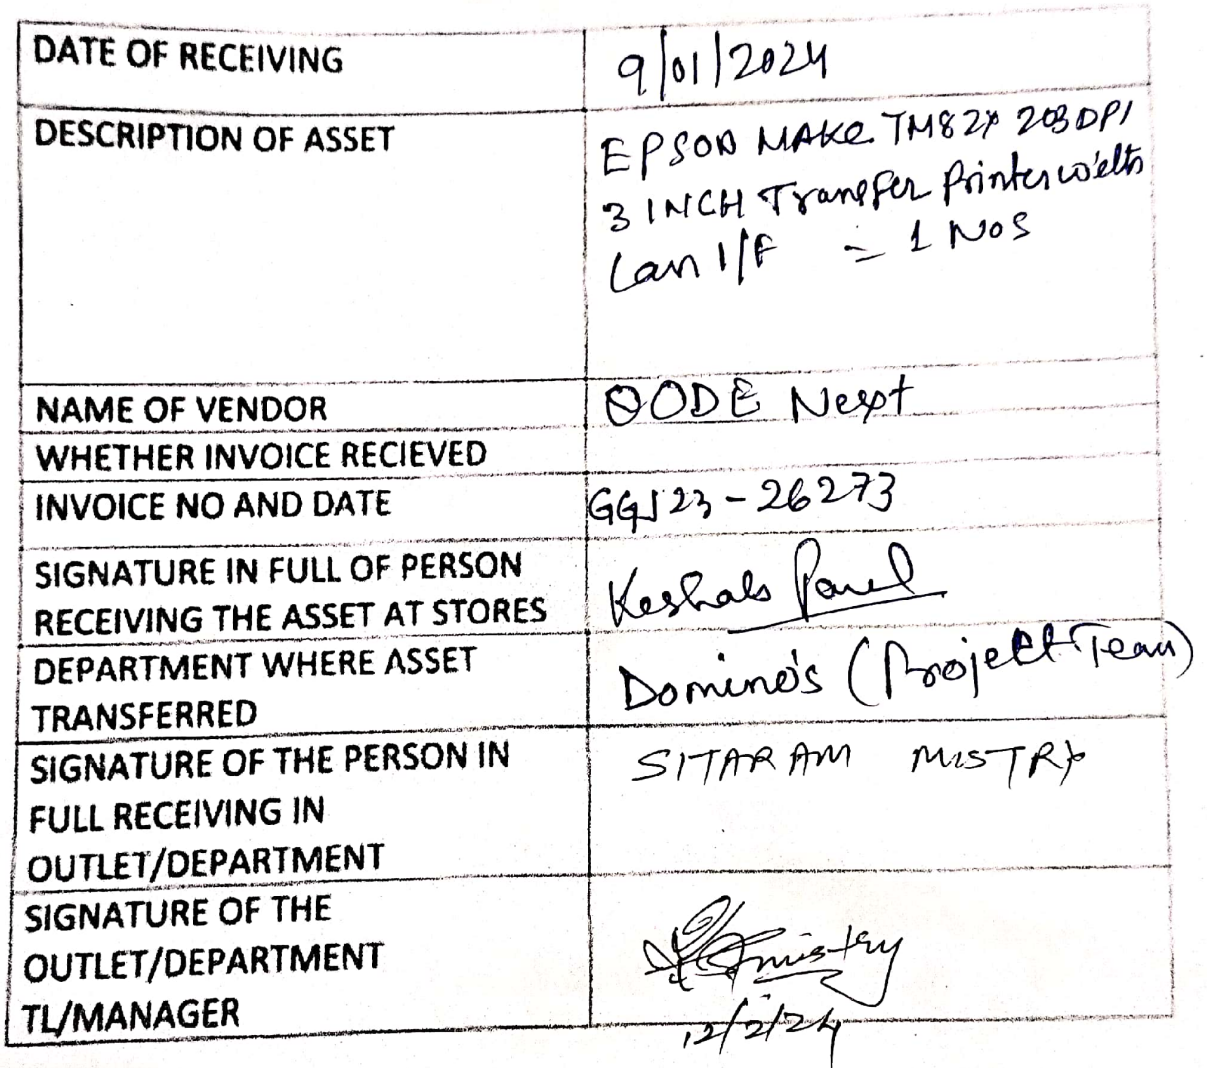 DATE OF RECEIVING
9/01/2024
DESCRIPTION OF ASSET
EPSON MAKE TM82X 203DPI
3 INCH Transfer Printer with
Lan I/F = 1 NOS
NAME OF VENDOR
QODE Next
WHETHER INVOICE RECIEVED
INVOICE NO AND DATE
GGJ23-26273
SIGNATURE IN FULL OF PERSON
RECEIVING THE ASSET AT STORES
Keshab
DEPARTMENT WHERE ASSET
TRANSFERRED
Domino's (Project Team)
SIGNATURE OF THE PERSON IN
FULL RECEIVING IN
OUTLET/DEPARTMENT
SITARAM MISTRY
SIGNATURE OF THE
OUTLET/DEPARTMENT
TL/MANAGER
mistry
12/2/24